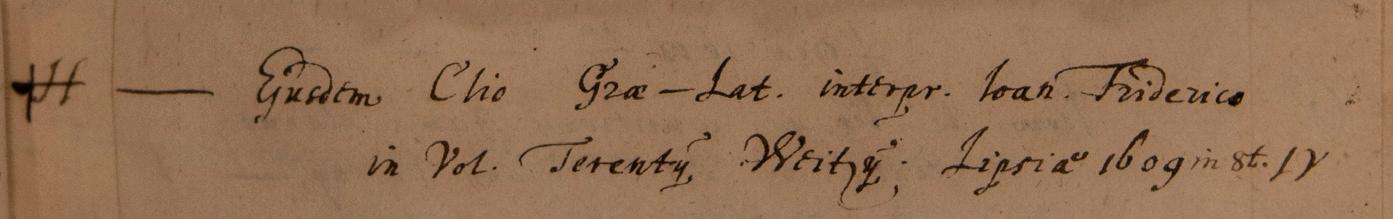 H — Eiusdem Clio Græ-Lat. interpr. Ioan. Friderico
in Vol. Terentÿ Weitzÿ; Lipsiæ 1609 in 8t. 1γ